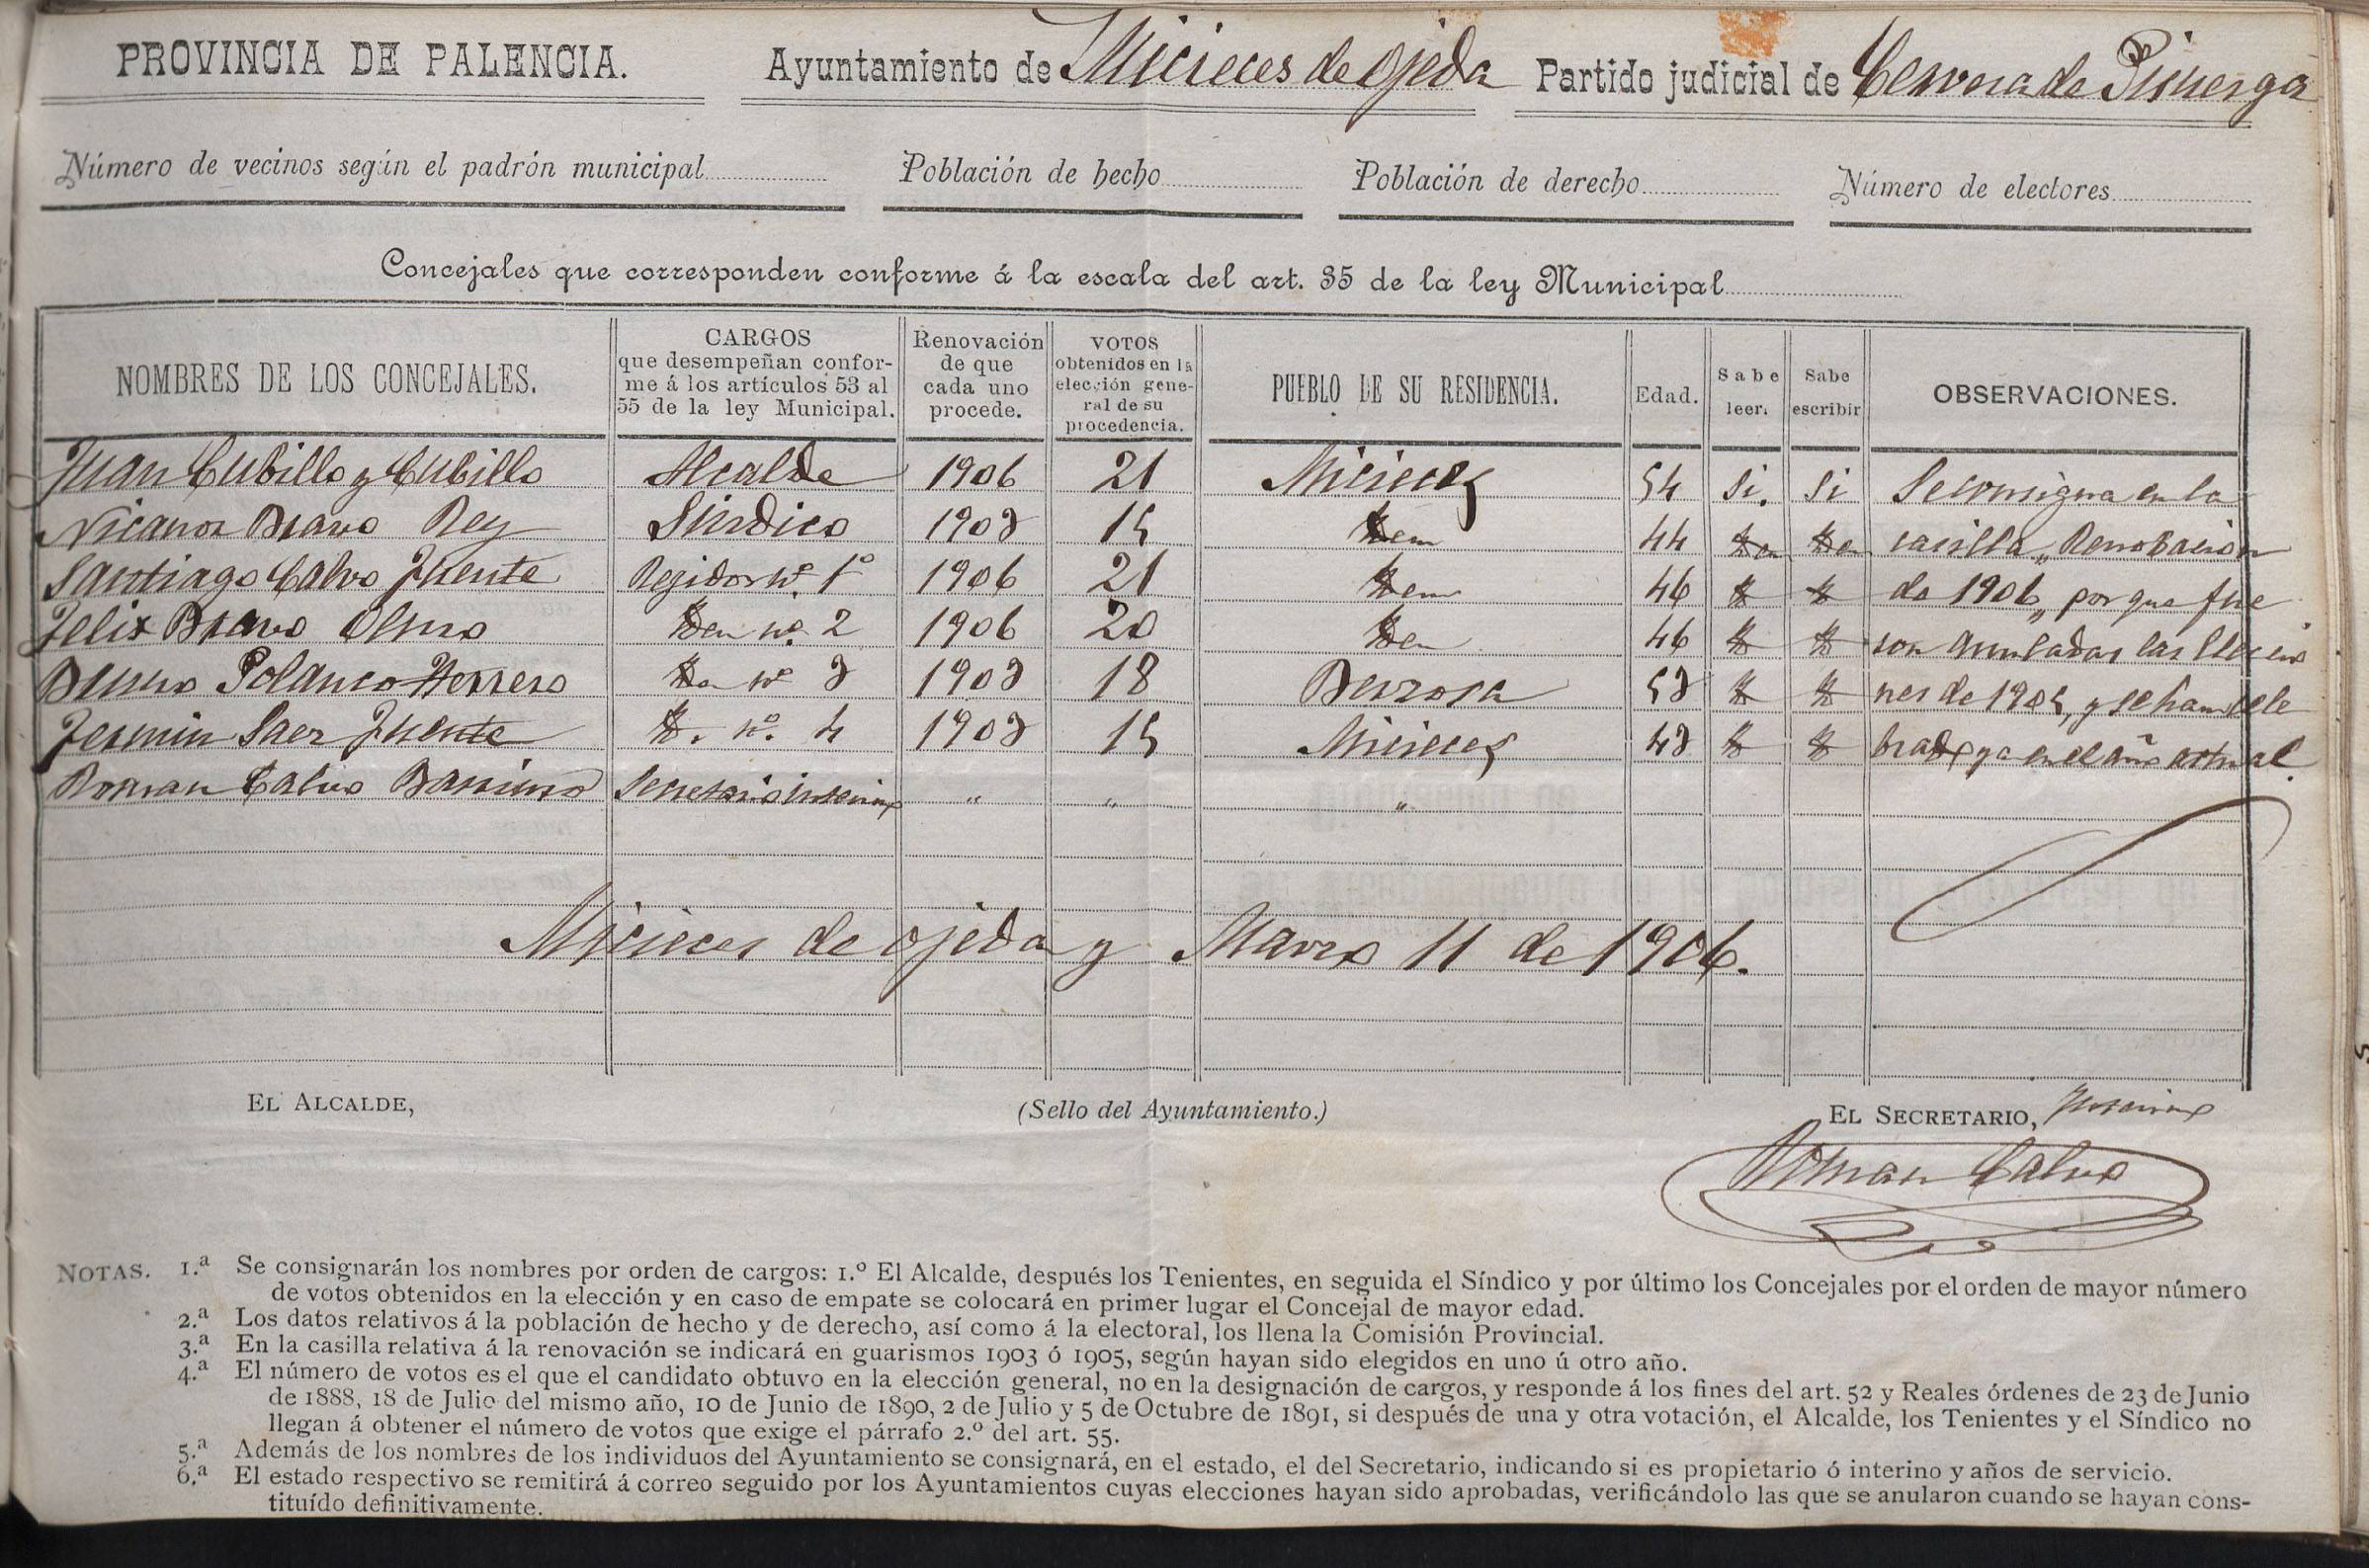 PROVINCIA DE PALENCIA. Ayuntamiento de Micieces de Ojeda Partido judicial de Cervera de Pisuerga
Número de vecinos según el padrón municipal Población de hecho Población de derecho Número de electores
Concejales que corresponden conforme á la escala del art. 35 de la ley Municipal
NOMBRES DE LOS CONCEJALES. CARGOS que desempeñan confor- me á los artículos 53 al 55 de la ley Municipal. Renovación de que cada uno procede. VOTOS obtenidos en la elección gene- ral de su procedencia. PUEBLO DE SU RESIDENCIA. Edad. Sabe leer. Sabe escribir OBSERVACIONES.
Juan Cubillo y Cubillo Alcalde 1906 21 Micieces 54 Si. Si Se consigna en la
Nicanor Bravo Rey Sindico 1903 15 Idem 44 Iden Iden casilla „ Renobacion
Santiago Calvo Fuente Regidor nº. 1º 1906 21 Idem 46 Id Id de 1906 „ por que fue
Felix Bravo Olmo Iden nº. 2 1906 20 Iden 46 Id Id ron anuladas las Eleccio
Polanco Herrero nº 3 1903 18 53 Id Id nes de 1905, y se han cele
Fermin Saez Fuente Id. nº. 4 1903 15 Micieces 43 Id Id brado ya en el año actual.
Roman Calvo Secretario interino „ „ „
Micieces de Ojeda y Marzo 11 de 1906.
EL ALCALDE, (Sello del Ayuntamiento.) EL SECRETARIO, Interino
Roman Calvo
NOTAS. 1.ª Se consignarán los nombres por orden de cargos: 1.º El Alcalde, después los Tenientes, en seguida el Síndico y por último los Concejales por el orden de mayor número
de votos obtenidos en la elección y en caso de empate se colocará en primer lugar el Concejal de mayor edad.
2.ª Los datos relativos á la población de hecho y de derecho, así como á la electoral, los llena la Comisión Provincial.
3.ª En la casilla relativa á la renovación se indicará en guarismos 1903 ó 1905, según hayan sido elegidos en uno ú otro año.
4.ª El número de votos es el que el candidato obtuvo en la elección general, no en la designación de cargos, y responde á los fines del art. 52 y Reales órdenes de 23 de Junio
de 1888, 18 de Julio del mismo año, 10 de Junio de 1890, 2 de Julio y 5 de Octubre de 1891, si después de una y otra votación, el Alcalde, los Tenientes y el Síndico no
llegan á obtener el número de votos que exige el párrafo 2.º del art. 55.
5.ª Además de los nombres de los individuos del Ayuntamiento se consignará, en el estado, el del Secretario, indicando si es propietario ó interino y años de servicio.
6.ª El estado respectivo se remitirá á correo seguido por los Ayuntamientos cuyas elecciones hayan sido aprobadas, verificándolo las que se anularon cuando se hayan cons-
tituído definitivamente.